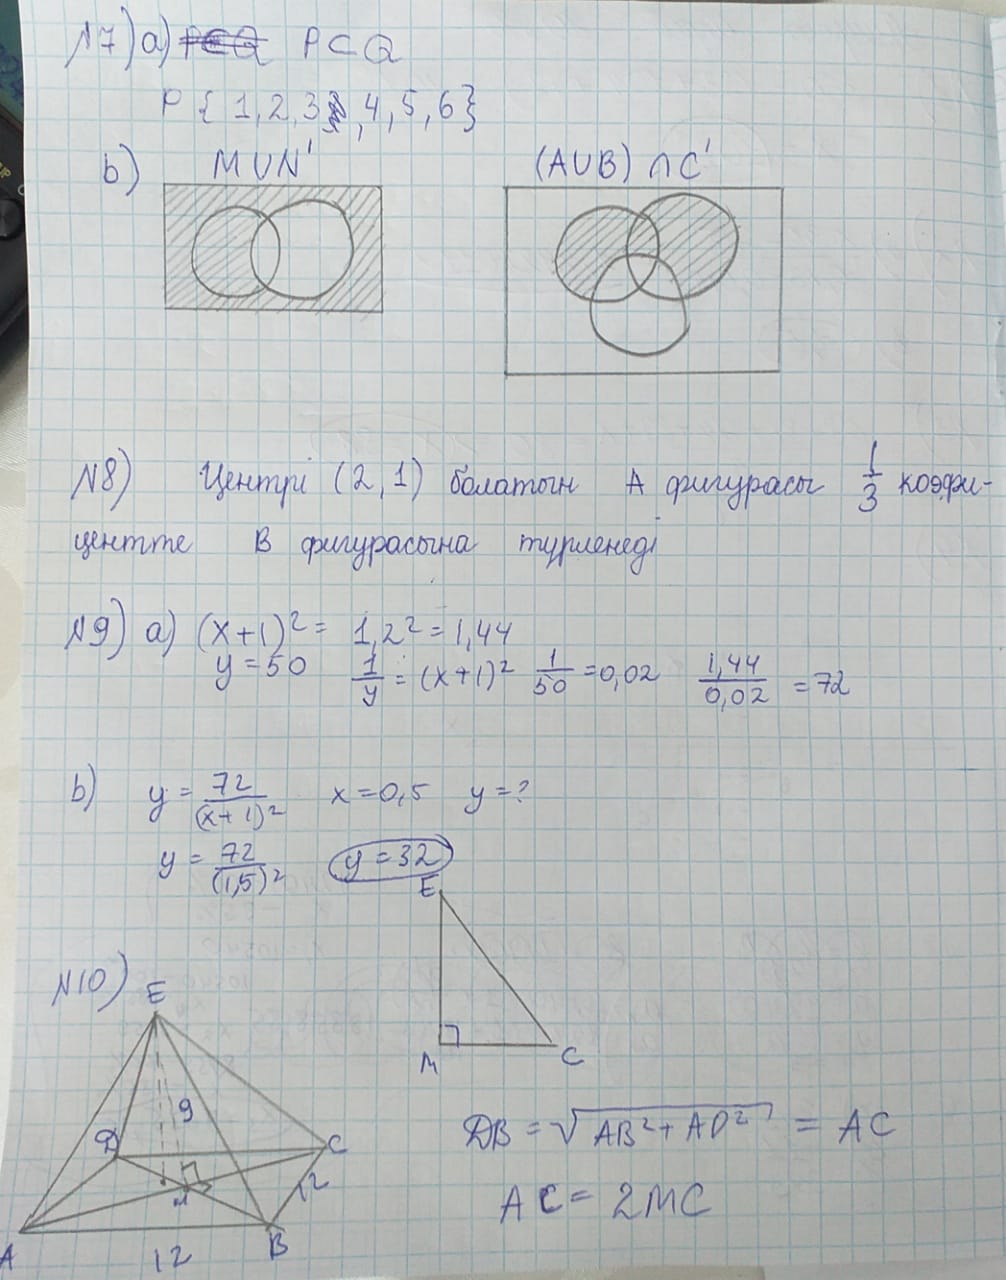 №7) a) P⊂Q
P { 1, 2, 3, 4, 5, 6 }
b) M∪N' (A∪B)∩C'
№8) Центрі (2,1) болатын А фигурасы 1/3 коэфи-
центте В фигурасына түрленеді
№9) a) (x+1)² = 1,2² = 1,44
y = 50 1/y = (x+1)² 1/50 = 0,02 1,44/0,02 = 72
b) y = 72/(x+1)² x = 0,5 y = ?
y = 72/(1,5)² y = 32
E
M C
№10) E
9
D C
M 12
A 12 B
DB = √(AB² + AD²) = AC
AC = 2MC